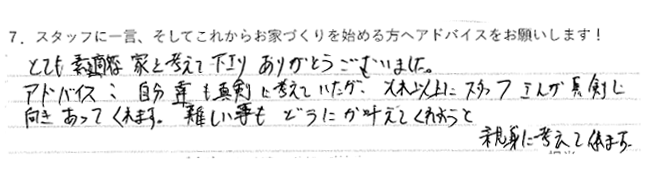 7. スタッフに一言、そしてこれからお家づくりを始める方へアドバイスをお願いします!
とても素適な家を考えて下さり ありがとうございました。
アドバイス: 自分達も真剣に考えていたが、それ以上にスタッフさんが真剣に
向きあってくれます。難しい事も どうにか叶えてくれようと
親身に考えて くれます。